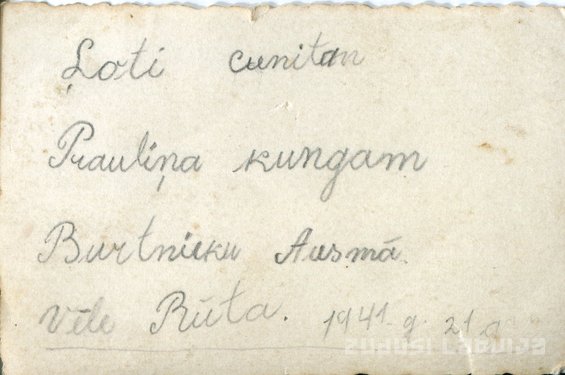 Ļoti cunitan
Prauliņa kungam
Burtnieku Ausmā.
Vēle Rūta. 1941 g. 21
zudusi Latvija